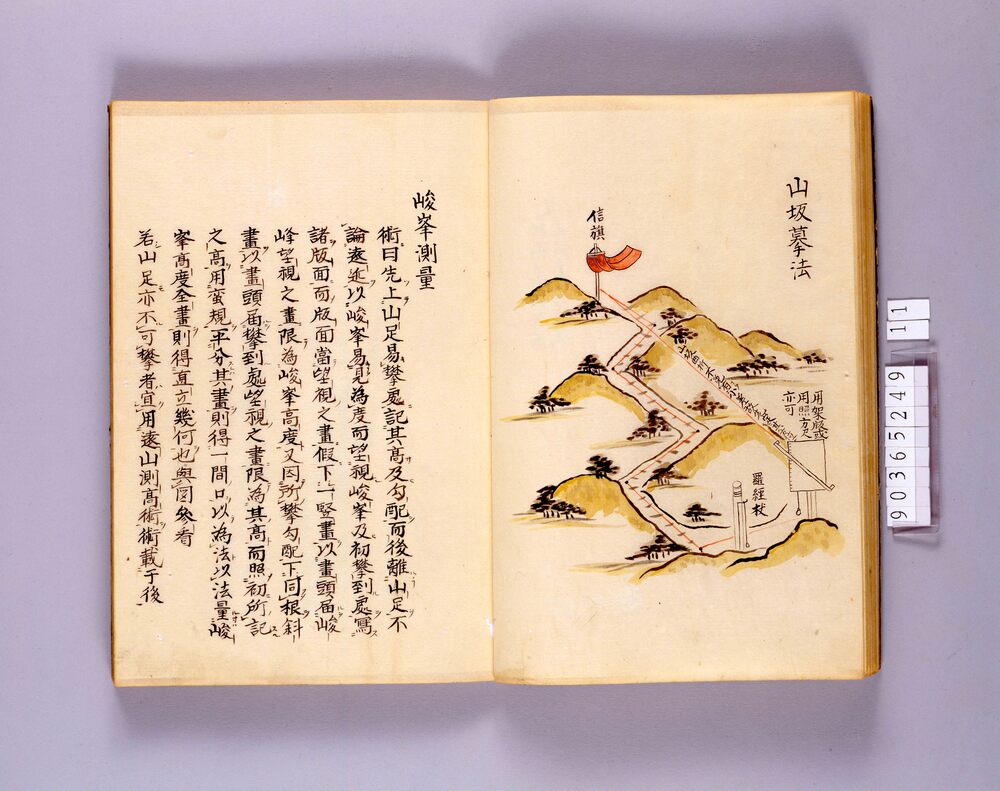 山坂摹法
信旗
用架版或
用照方尺
亦可
羅經杖
峻峯測量
術曰先上山足易攀處記其高及勾配而後離山足不
論遠近以峻峯易見為度而望視峻峯及初攀到處寫
諸版面而版面當望視之畫假下一豎畫以畫頭届峻
峰望視之畫限為峻峯高度又因所攀勾配下同根斜
畫以畫頭届攀到處望視之畫限為其高而照初所記
之高用蛮規平分其畫則得一間口以為法以法量峻
峯高度全畫則得直立幾何也與図參看
若山足亦不可攀者宜用遠山測高術術載于後
11
90365249